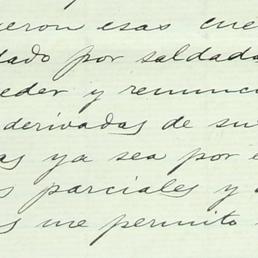 eron esas cue
dado por saldada
eder y renunc
derivadas de su
as ya sea por e
s parciales y
s me permito